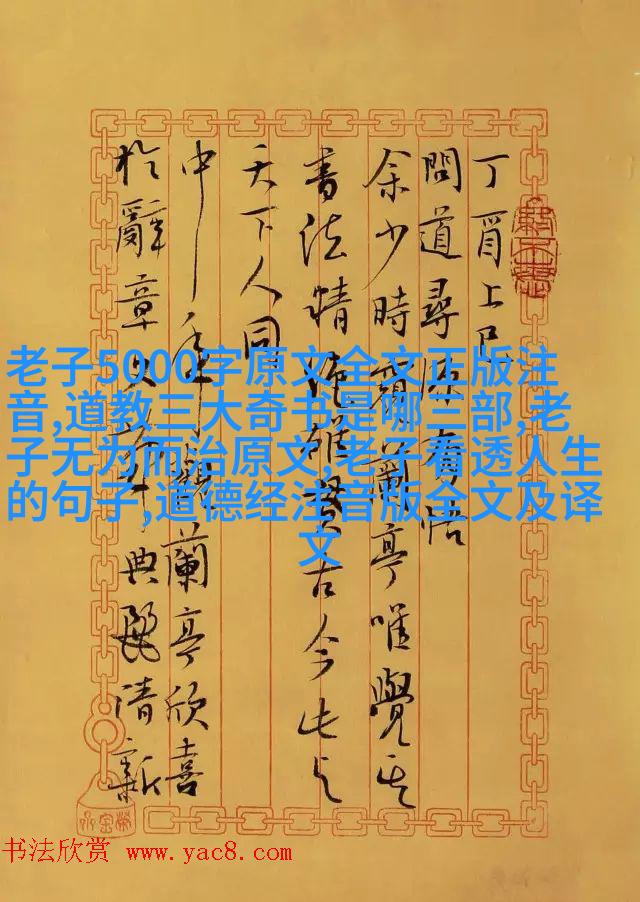 丁酉上巳
問道尋源有悟
余少時習蘭亭唯覺其
書法精古今此与
天下人同
中年觀蘭亭欣喜
於辭章文華典麗清新
老子5000字原文全文正版注
音,道教三大奇书是哪三部,老
子无为而治原文,老子看透人生
的句子,道德经注音版全文及译
文
书法欣赏 www.yac8.com